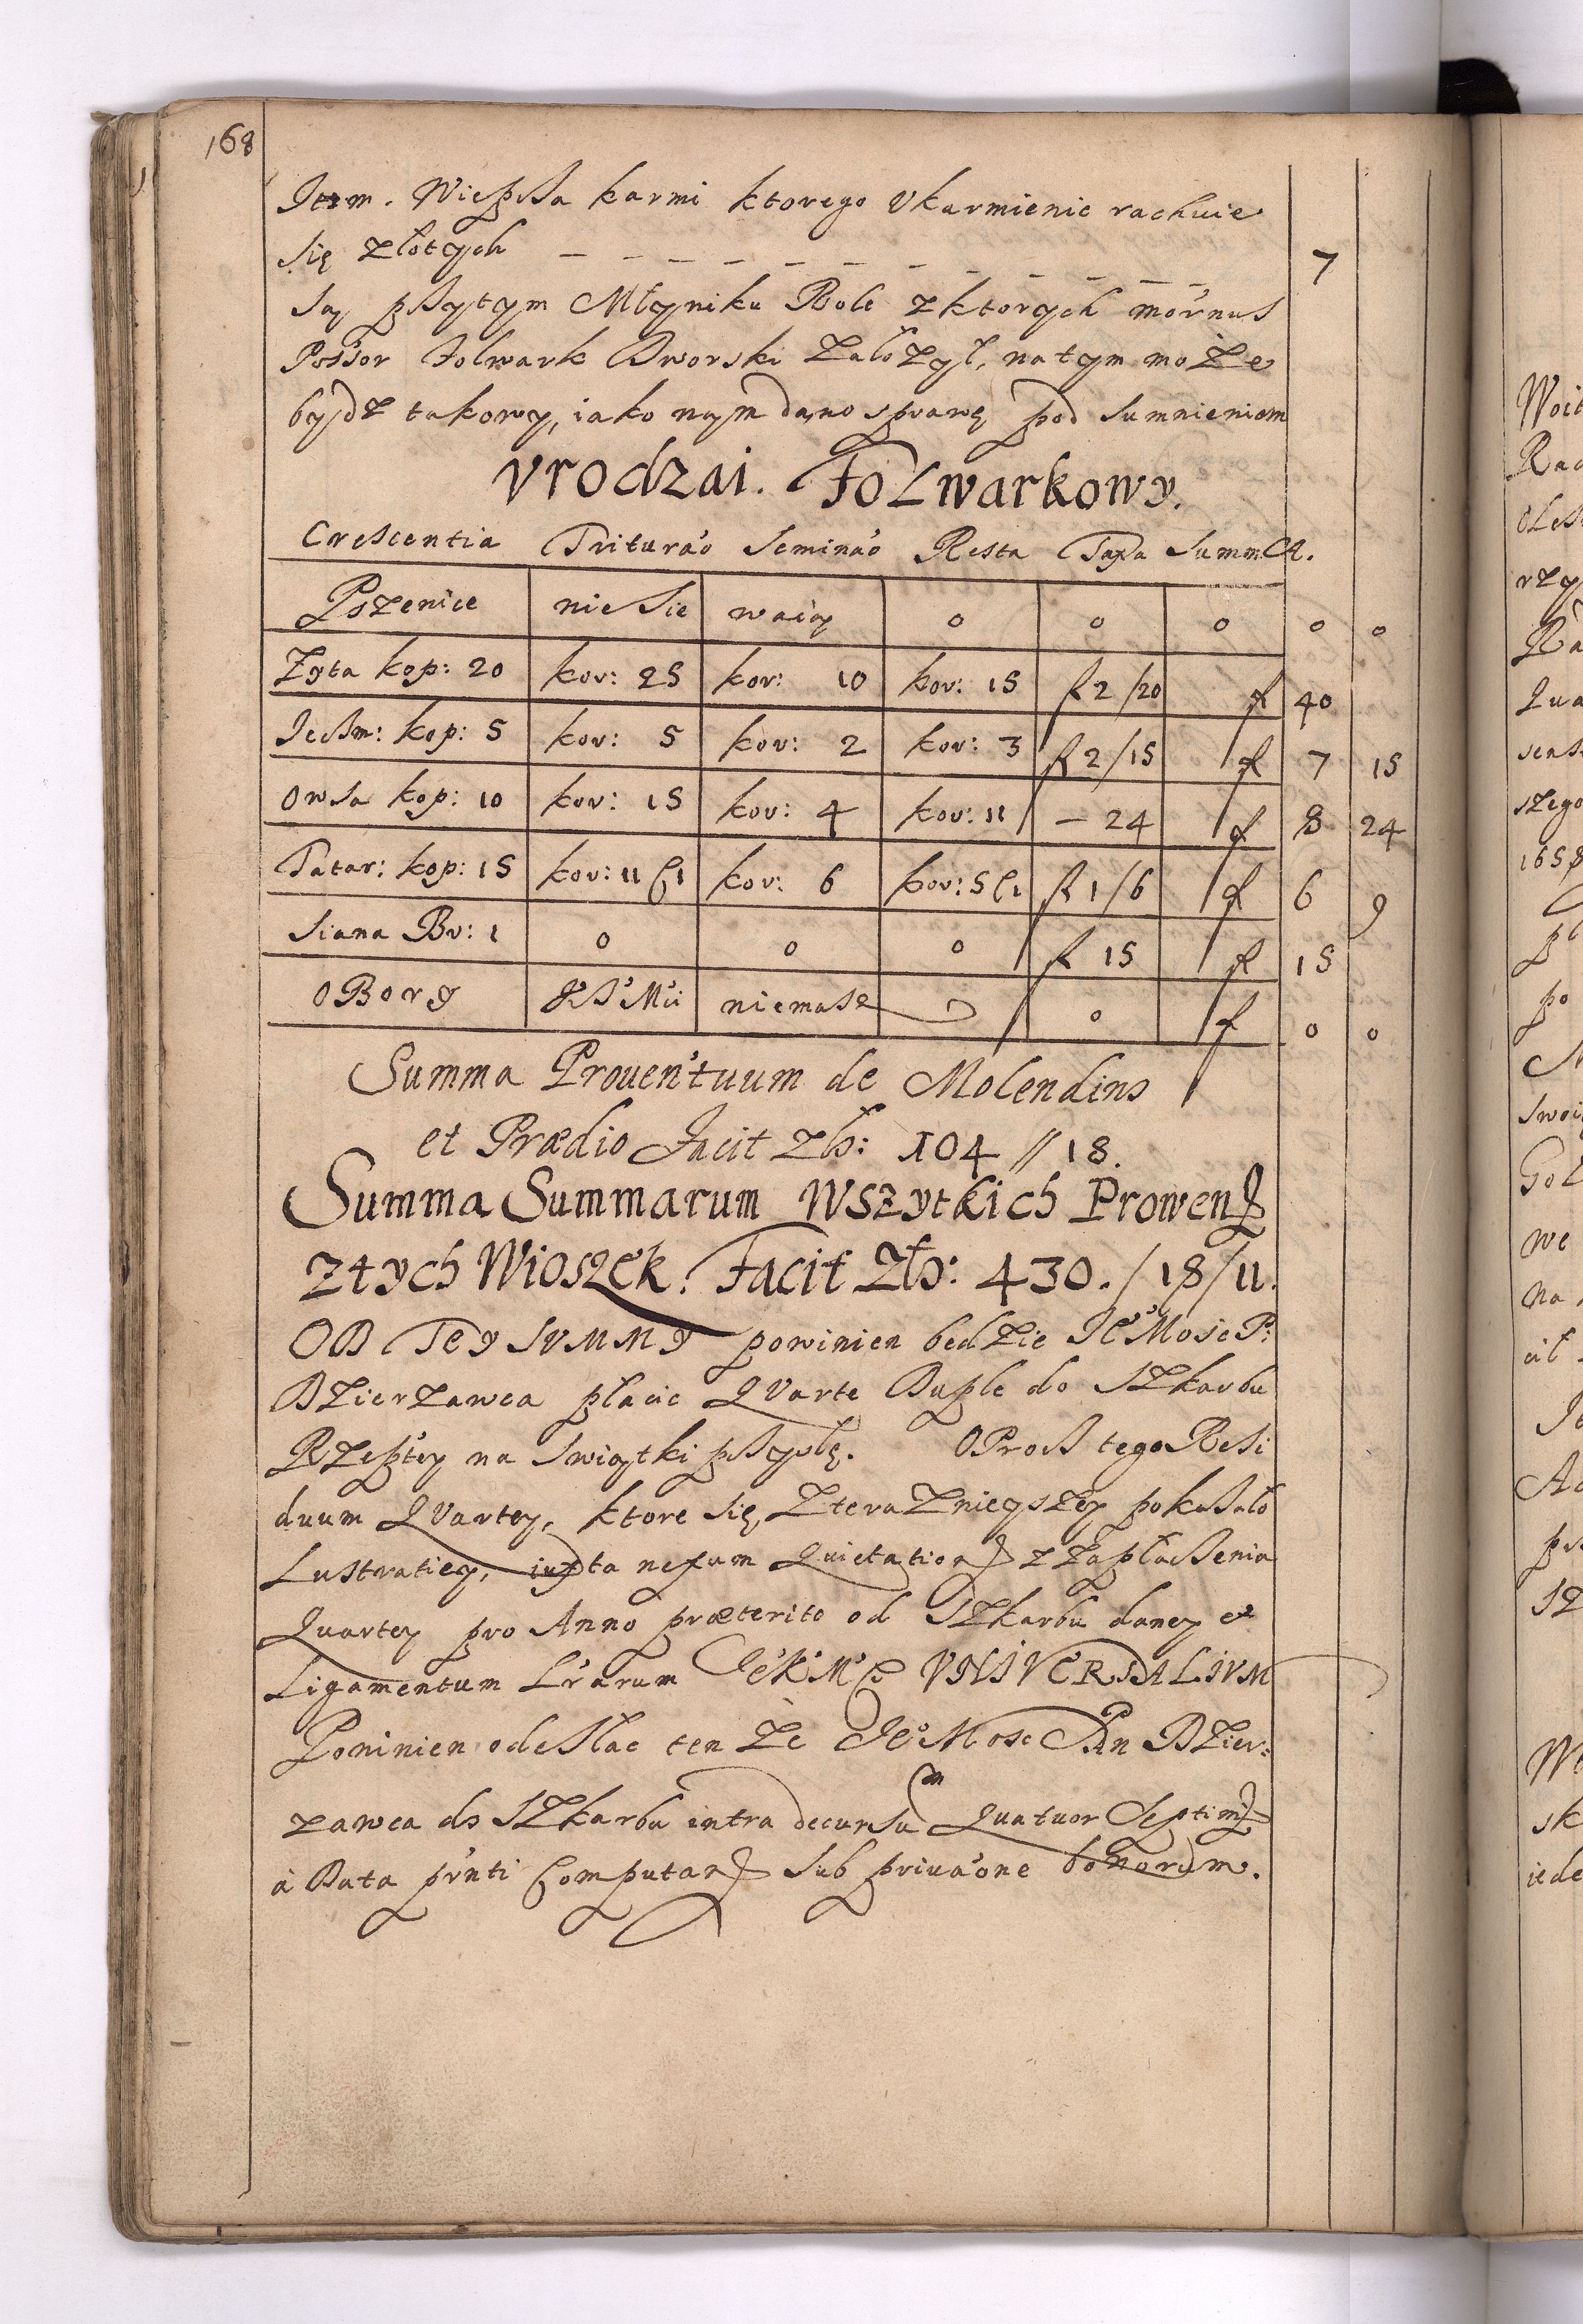 168
Item. Wieprza karmi ktorego Vkarmienie rachuie
się złotych — — — — — — — — — — — 7
Są przytym Młyniku Role z ktorych modernus
Possor Folwark Dworski założył, na tym może
bydź takowy, iako nam dano sprawę pod sumnieniem
Vrodzai. Folwarkowy.
Crescentia Triturao Seminao Resta Taxa Summa.
Pszenice nie Sie waią 0 0 0 0 0
Zyta kop: 20 kor: 25 kor: 10 kor: 15 f 2/20 f 40
Ieczm: kop: 5 kor: 5 kor: 2 kor: 3 f 2/15 f 7 15
Owsa kop: 10 kor: 15 kor: 4 kor: 11 – 24 f 8 24
Tatar: kop: 15 kor: 11 kor: 6 kor: 5 f 1/6 f 6 9
Siana Br: 1 0 0 0 f 15 f 15
OBory niemasz 0 f 0 0
Summa Prouentuum de Molendino
et Prædio Facit zło: 104 // 18.
Summa Summarum Wszytkich Prowen
z tych Wioszek. Facit Zło: 430. / 18 / 11.
OD Tey SVMMy powinien bedzie Je Mosc P:
Dzierzawca płacic QVarte Duple do Szkarbu
Rzeptey na Swiątki przyszłe. OProcz tego Resi
duum QVartey, ktore się z terazniejszey pokazało
Lustratiey, iuxta nexum Quietation z zapłaczenia
Quartey pro Anno præterito od Szkarbu daney et
Ligamentum Lrarum JeKM VNIVERSALIVM
Powinien odesłac ten że Je Mosc Pan Dzier:
zawca do Szkarbu intra decursum Quatuor Septim
à Data prnti Computan Sub priuaone bonorum.